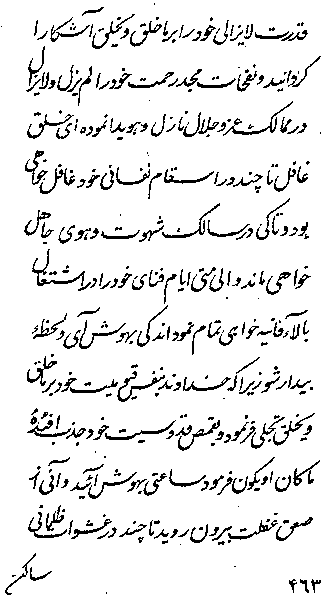 قدرت لایزالی خود را بر ما خلق و یخلق آشکارا
کردانید و نفحات مجد رحمت خود را لم یزل و لایزال
در ممالک عز و جلال نازل و هویدا نموده ای خلق
غافل تا چند در اسقام نفسانی خود غافل خواهی
بود و تا کی در مسالک شهوت و هوی جاهل
خواهی ماند و الی متی ایام فنای خود را در اشتغال
بالآء فانیه خواهی تمام نمود اندکی بهوش آی و لحظهٔ
بیدار شو زیرا که خداوند بنفس میت خود بر ما خلق
و یخلق تجلی فرموده و بقمص قدوسیت خود جذب افئدهٔ
ما کان او یکون فرمود ساعتی بهوش آئید و آنی از
صعق غفلت بیرون روید تا چند در غشوات ظلمانی
ساکن
۴۶۳